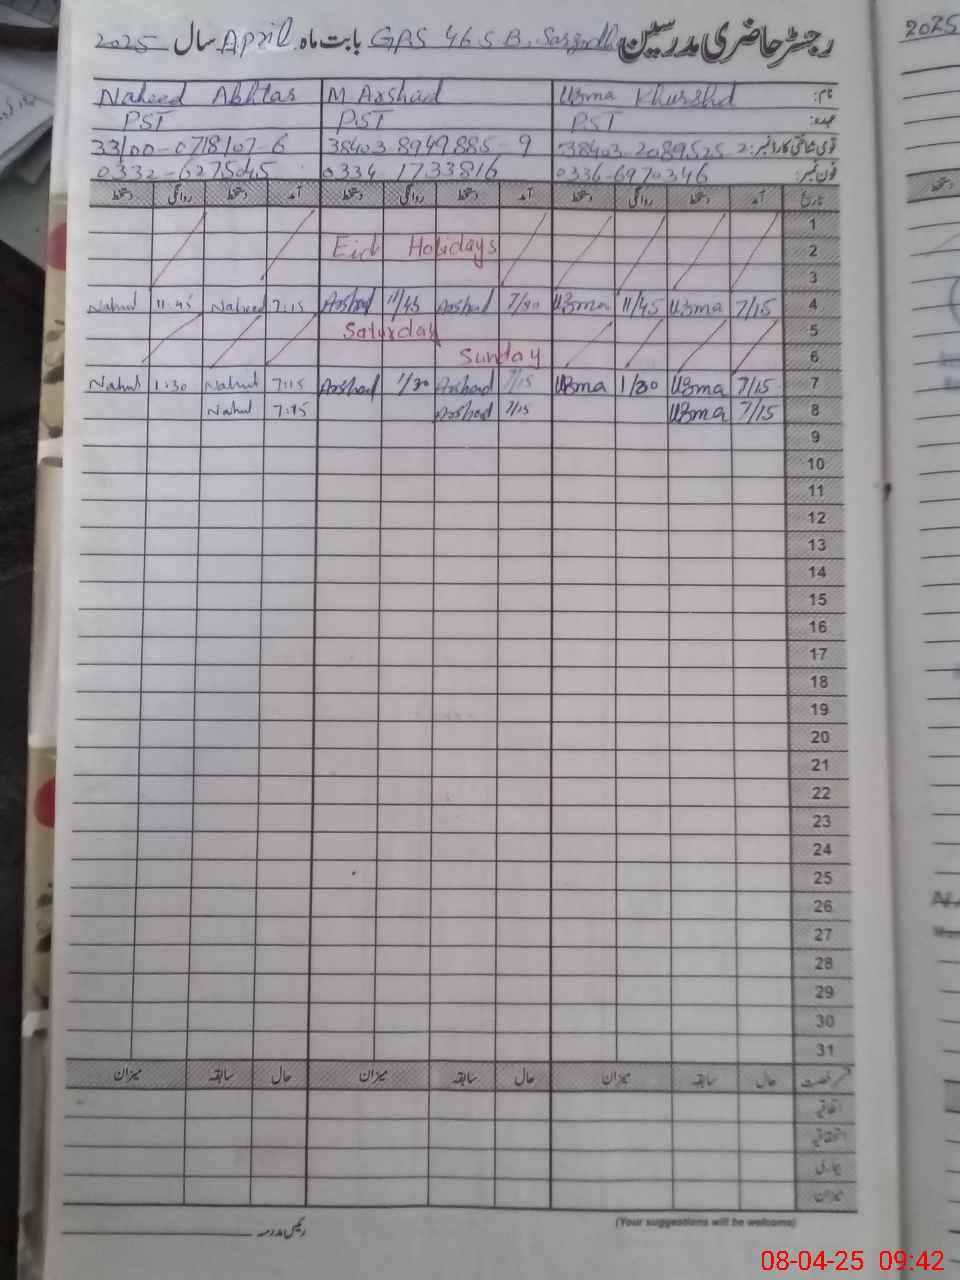 رجسٹر حاضری مدرسین GPS 46 S B, Sargodh بابت ماہ April سال 2025
2025
نام: Uzma Khurshid M Arshad Naheed Akhtar
عہدہ: PST PST PST
قومی شناختی کارڈ نمبر: 38403 2089525 2 38403 8949885-9 33100-0718107-6
فون نمبر: 0336-6970346 0334 1733816 0332-6275045
تاریخ آمد دستخط روانگی دستخط آمد دستخط روانگی دستخط آمد دستخط روانگی دستخط
1
2 Eid Holidays
3
4 7/15 Uzma 11/45 Uzma Arshad 11/45 Arshad 7:15 Naheed 11:45 Nahid
5 Saturday
6 Sunday
7 7/15 Uzma 1/30 Uzma 7/15 Arshad 1/30 Arshad 7:15 Nahid 1:30 Nahid
8 7/15 Uzma 7/15 Arshad 7:15 Nahid
9
10
11
12
13
14
15
16
17
18
19
20
21
22
23
24
25
26
27
28
29
30
31
رخصت حال سابقہ میزان حال سابقہ میزان حال سابقہ میزان
اتفاقیہ
استحقاقیہ
بیماری
میزان
رئیس مدرسہ
(Your suggestions will be welcome)
08-04-25 09:42